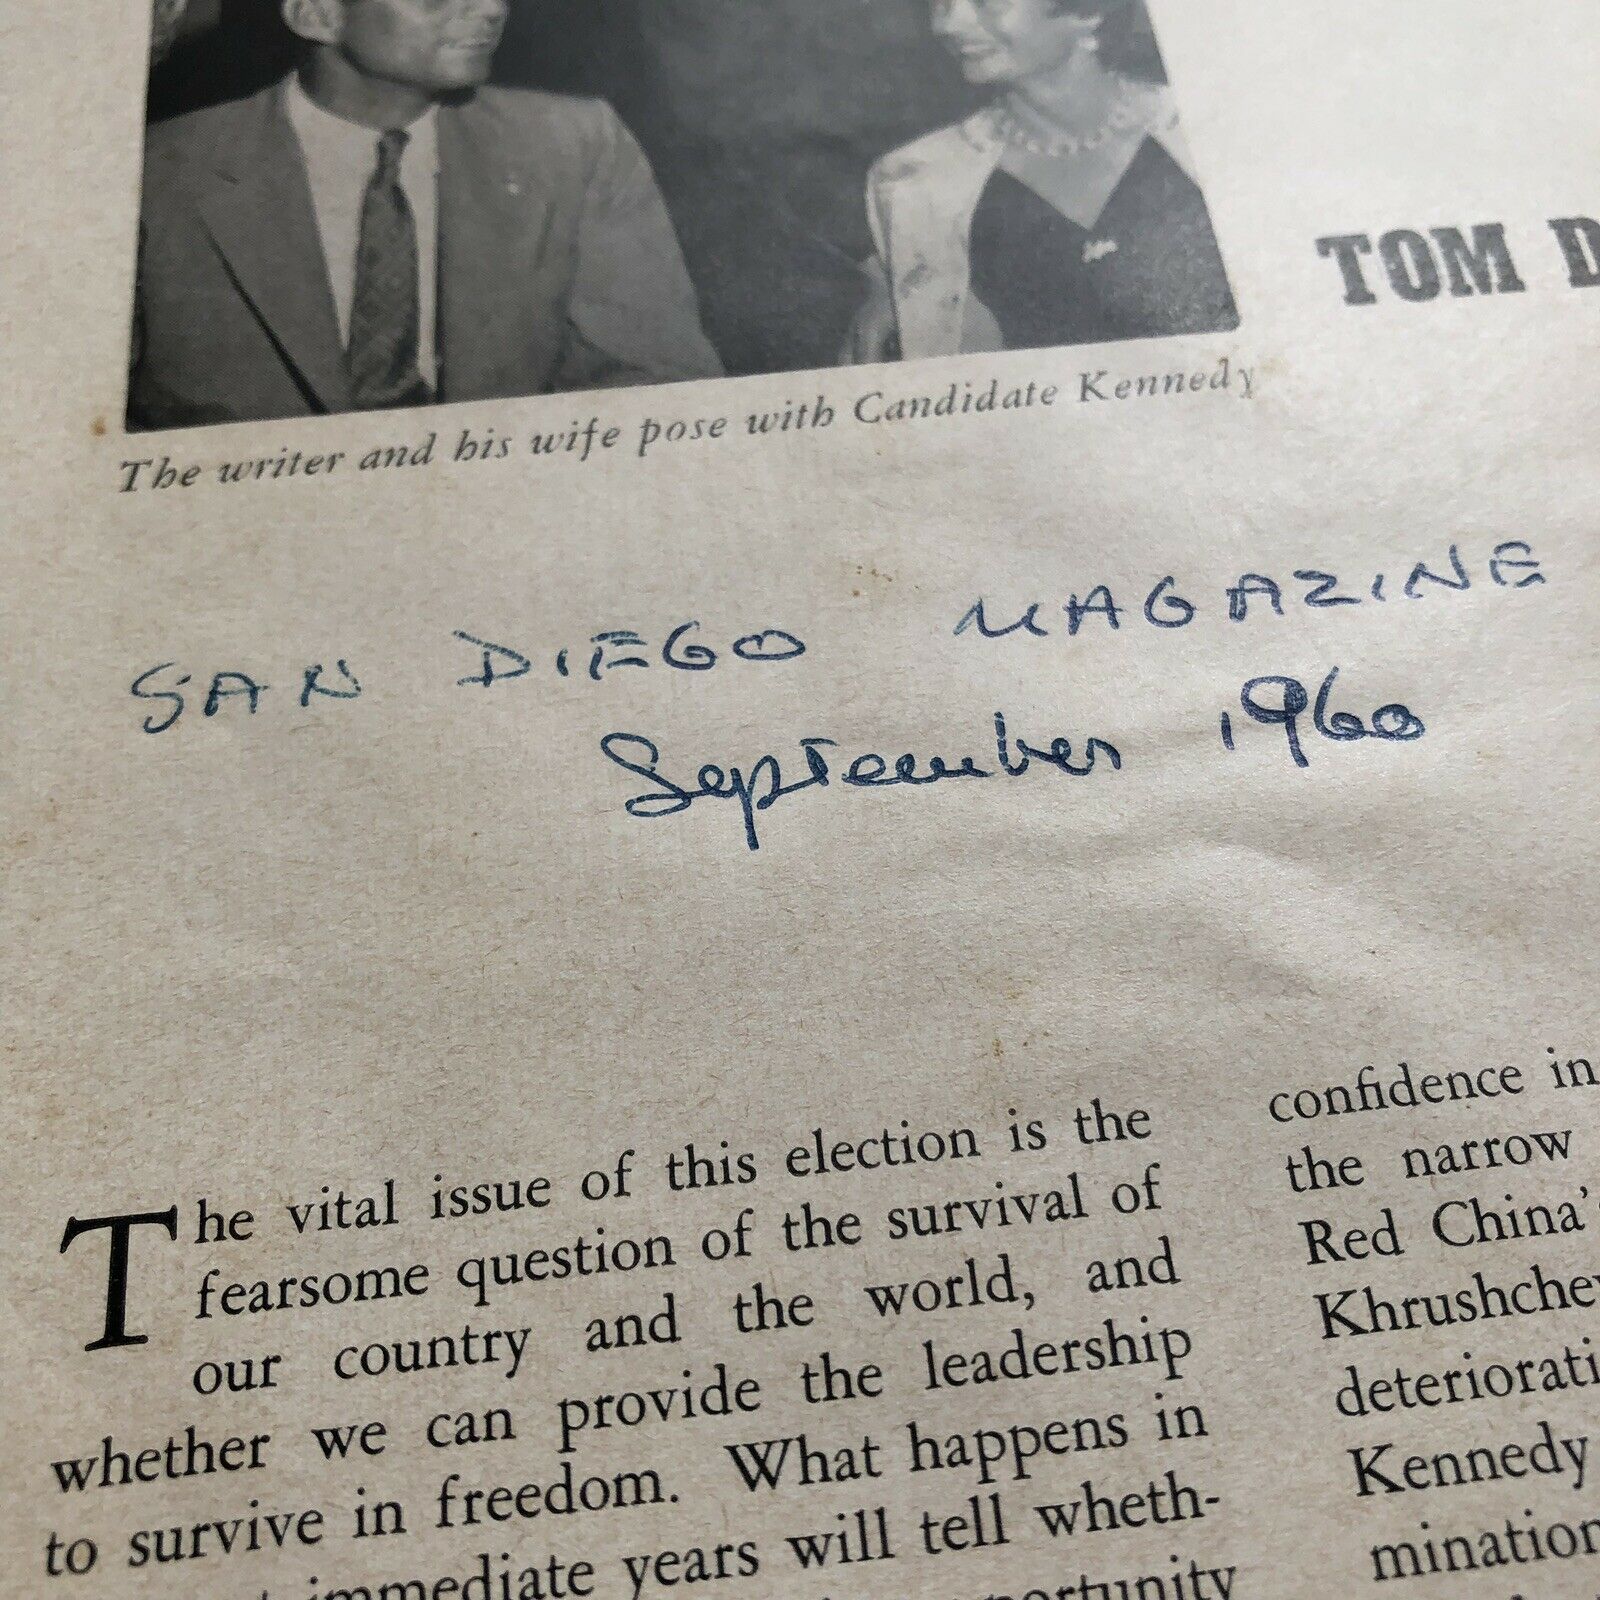 TOM D
The writer and his wife pose with Candidate Kennedy
SAN DIEGO MAGAZINE
September 1960
The vital issue of this election is the
fearsome question of the survival of
our country and the world, and
whether we can provide the leadership
to survive in freedom. What happens in
immediate years will tell wheth-
opportunity
confidence in
the narrow
Red China's
Khrushchev
deteriorati
Kennedy
mination